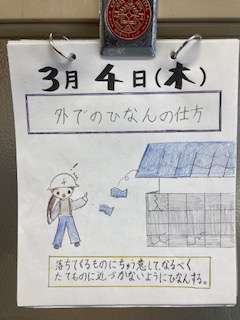 3月4日(木)
外でのひなんの仕方
落ちてくるものにちゅう意して、なるべく
たてものに近づかないようにひなんする。